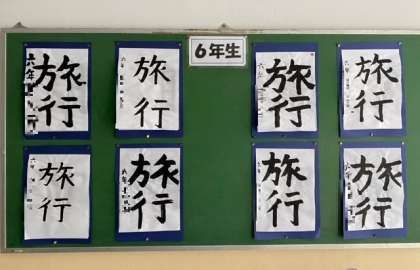 6年生
旅行
旅行
旅行
旅行
旅行
旅行
旅行
旅行